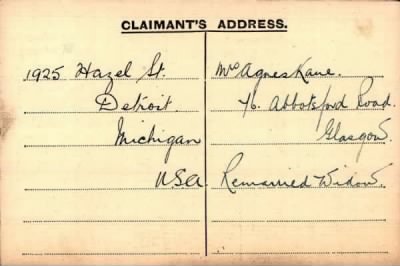 CLAIMANT'S ADDRESS.
1925 Hazel St.
Detroit.
Michigan
USA
Mrs Agnes Kane.
76. Abbotsford Road.
Glasgow.
Remarried Widow.